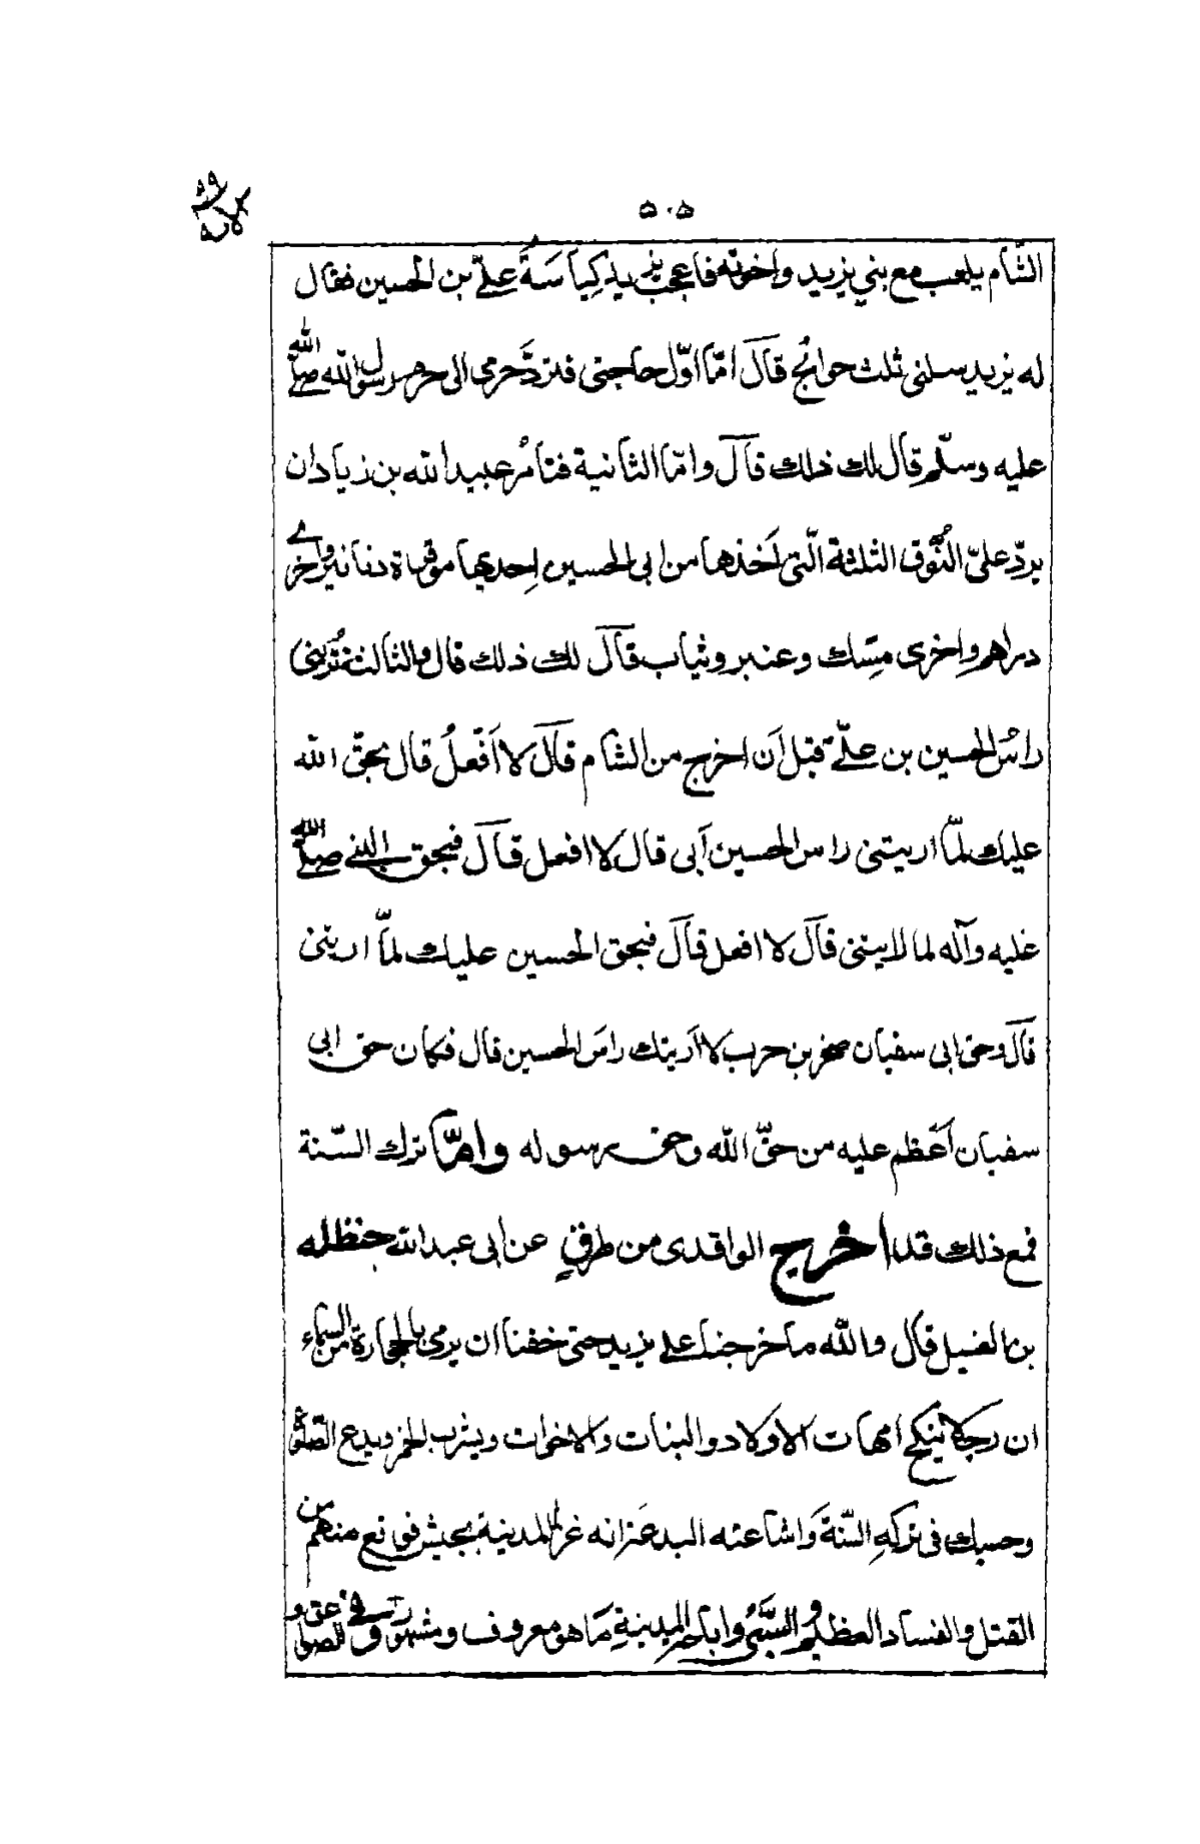 ٥٠٥
الشام يلعب مع بني يزيد واخوته فاعجب يزيد كياسة علي بن الحسين فقال
له يزيد سلني ثلث حوائج قال امّا اوّل حاجتي فتردَّ حرمي الى حرم رسول الله صلى الله
عليه وسلّم قال لك ذلك قال وامّا الثانية فتامُر عبيد الله بن زياد ان
يردّ عليّ النُّوق الثلثة الّتي اَخذها من ابى الحسين اِحديها موقرة دنانير واخرى
دراهم واخرى مِسك وعنبر وثياب قال لك ذلك قال والثالث فتُريني
راسُ الحسين بن عليّ قبل اَن اخرج من الشام قال لا اَفعلُ قال بحقّ الله
عليك لمّا اريتنى راس الحسين اَبى قال لا افعل قال فبحق النبي صلى الله
عليه وآله لما اريتنى قال لا افعل قال فبحق الحسين عليك لمّا اريتنى
قال وحق ابى سفيان صخر بن حرب لا اَريتك راسَ الحسين قال فكان حق ابى
سفيان اَعْظم عليه من حقّ الله وحق رسوله وامّا ترك السّنة
فمع ذلك قد اخرج الواقدى من طرقٍ عن ابى عبد الله حنظله
بن الغسيل قال والله ما خرجنا على يزيد حتى خفنا ان يرمى بالحجارة من السماء
ان رجلا ينكح امهات الاولاد والبنات والاخوات ويشرب الخمر ويدع الصّلوة
وحسبك فى تركهِ السّنةَ واشاعته البدعة انه غزا المدينة بجيش فوقع منهم من
القتل والفساد العظيم والسَّبْى واباحة المدينةِ مَا هو معروف ومشهور